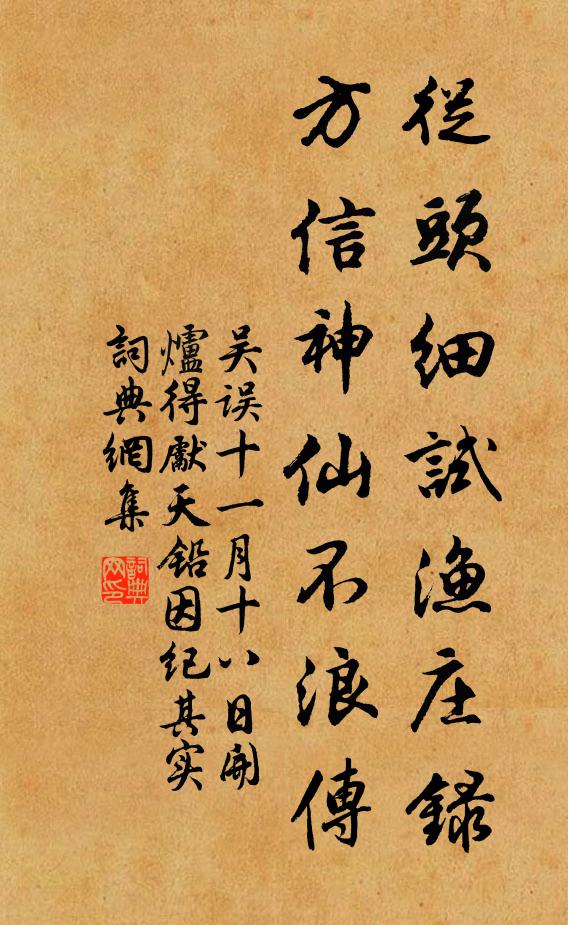 從頭細試漁庄錄
方信神仙不浪傳
吴誤十一月十八日開
爐得獻天鉛因紀其实
詞典網集
詞典
网印